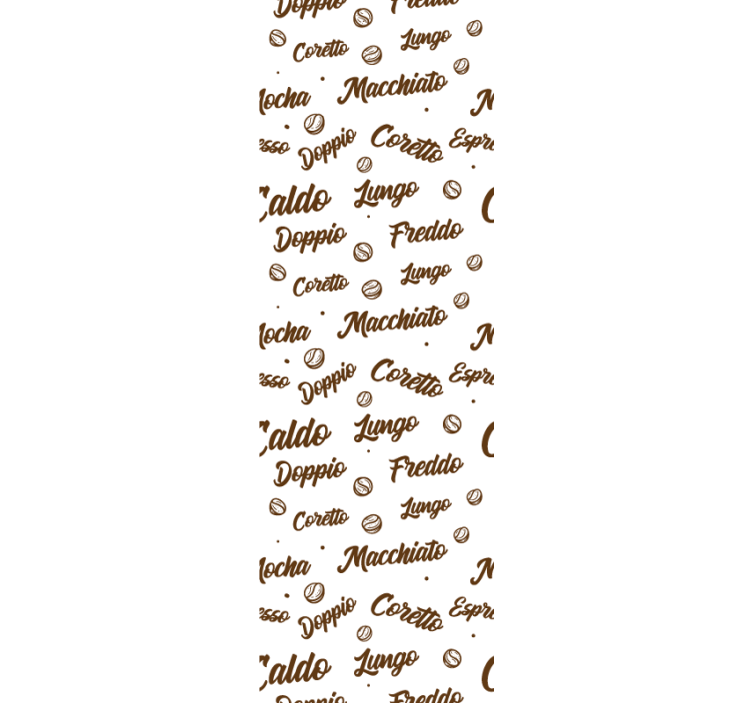 Doppio Freddo
Coretto Lungo
Mocha Macchiato M
esso Doppio Coretto Espre
Caldo Lungo C
Doppio Freddo
Coretto Lungo
Mocha Macchiato M
esso Doppio Coretto Espre
Caldo Lungo C
Doppio Freddo
Coretto Lungo
Mocha Macchiato M
esso Doppio Coretto Espre
Caldo Lungo C
Doppio Freddo